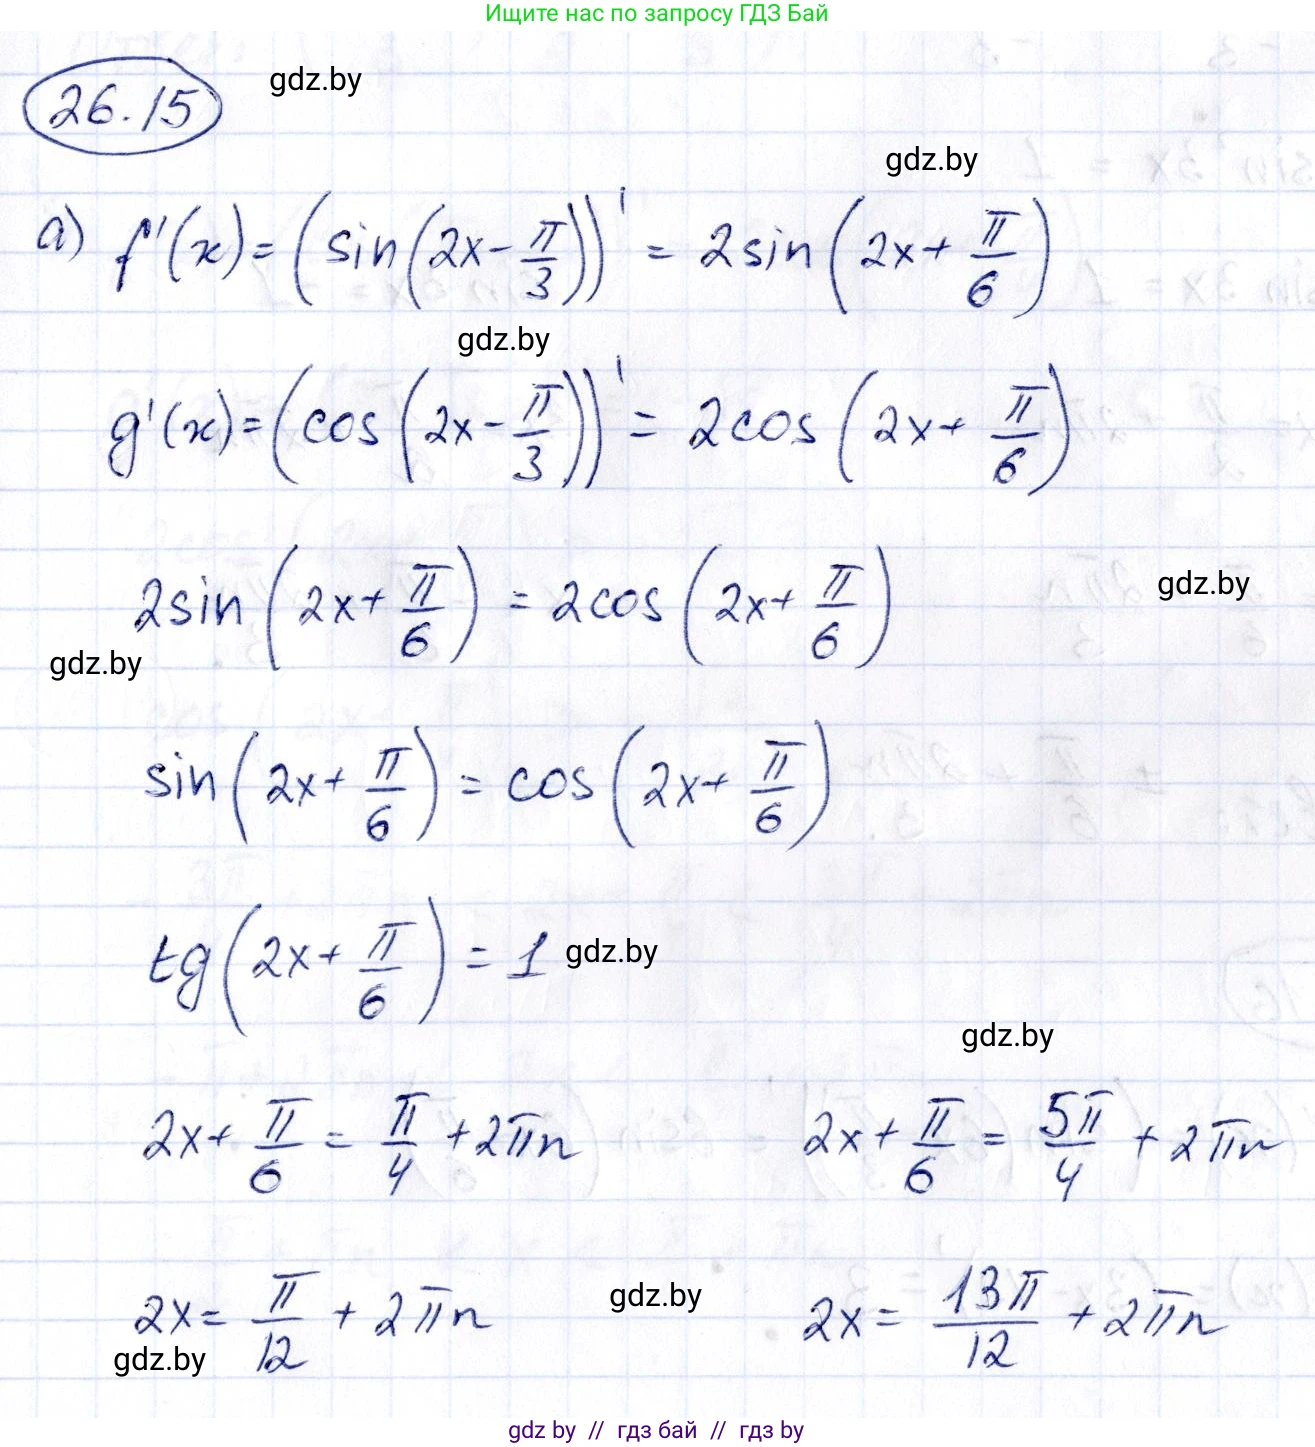 Ищите нас по запросу ГДЗ Бай
26.15 gdz.by
gdz.by
а) f'(x) = (sin(2x - π/3))' = 2sin(2x + π/6)
gdz.by
g'(x) = (cos(2x - π/3))' = 2cos(2x + π/6)
2sin(2x + π/6) = 2cos(2x + π/6) gdz.by
gdz.by
sin(2x + π/6) = cos(2x + π/6)
tg(2x + π/6) = 1 gdz.by
gdz.by
2x + π/6 = π/4 + 2πn 2x + π/6 = 5π/4 + 2πn
2x = π/12 + 2πn gdz.by 2x = 13π/12 + 2πn
gdz.by
gdz by // гдз бай // гдз by